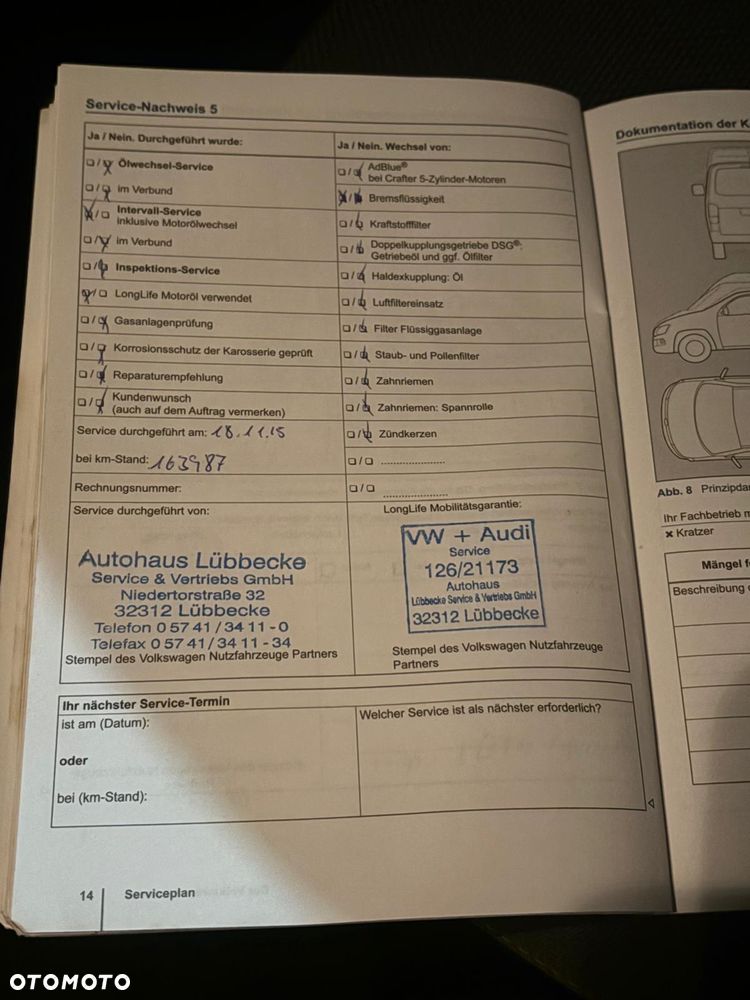 Service-Nachweis 5
Ja / Nein. Durchgeführt wurde:
□/□ Ölwechsel-Service
□/□ im Verbund
□/□ Intervall-Service
inklusive Motorölwechsel
□/□ im Verbund
□/□ Inspektions-Service
□/□ LongLife Motoröl verwendet
□/□ Gasanlagenprüfung
□/□ Korrosionsschutz der Karosserie geprüft
□/□ Reparaturempfehlung
□/□ Kundenwunsch
(auch auf dem Auftrag vermerken)
Service durchgeführt am: 18.11.15
bei km-Stand: 163987
Rechnungsnummer:
Service durchgeführt von:
Autohaus Lübbecke
Service & Vertriebs GmbH
Niedertorstraße 32
32312 Lübbecke
Telefon 0 57 41 / 34 11 - 0
Telefax 0 57 41 / 34 11 - 34
Stempel des Volkswagen Nutzfahrzeuge Partners
Ja / Nein. Wechsel von:
□/□ AdBlue®
bei Crafter 5-Zylinder-Motoren
□/□ Bremsflüssigkeit
□/□ Kraftstofffilter
□/□ Doppelkupplungsgetriebe DSG®:
Getriebeöl und ggf. Ölfilter
□/□ Haldexkupplung: Öl
□/□ Luftfiltereinsatz
□/□ Filter Flüssiggasanlage
□/□ Staub- und Pollenfilter
□/□ Zahnriemen
□/□ Zahnriemen: Spannrolle
□/□ Zündkerzen
□/□ ......................
□/□ ......................
LongLife Mobilitätsgarantie:
VW + Audi
Service
126/21173
Autohaus
Lübbecke Service & Vertriebs GmbH
32312 Lübbecke
Stempel des Volkswagen Nutzfahrzeuge
Partners
Ihr nächster Service-Termin
ist am (Datum):
oder
bei (km-Stand):
Welcher Service ist als nächster erforderlich?
14 Serviceplan
Dokumentation der K
Abb. 8 Prinzipda
Ihr Fachbetrieb m
× Kratzer
Mängel f
Beschreibung
OTOMOTO